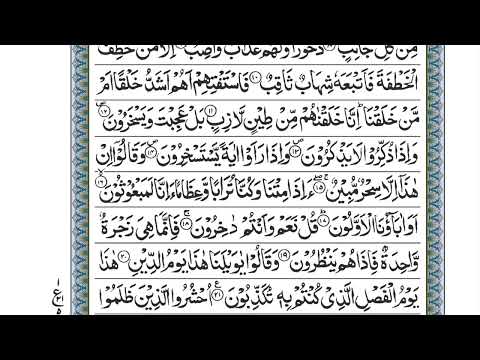 مِنْ كُلِّ جَانِبٍ ۝٨ دُحُوْرًا وَّلَهُمْ عَذَابٌ وَّاصِبٌ ۝٩ اِلَّا مَنْ خَطِفَ
الْخَطْفَةَ فَاَتْبَعَهٗ شِهَابٌ ثَاقِبٌ ۝١٠ فَاسْتَفْتِهِمْ اَهُمْ اَشَدُّ خَلْقًا اَمْ
مَّنْ خَلَقْنَا ؕ اِنَّا خَلَقْنٰهُمْ مِّنْ طِيْنٍ لَّازِبٍ ۝١١ بَلْ عَجِبْتَ وَيَسْخَرُوْنَ ۝١٢
وَاِذَا ذُكِّرُوْا لَا يَذْكُرُوْنَ ۝١٣ وَاِذَا رَاَوْا اٰيَةً يَّسْتَسْخِرُوْنَ ۝١٤ وَقَالُوْۤا اِنْ
هٰذَاۤ اِلَّا سِحْرٌ مُّبِيْنٌ ۝١٥ ءَاِذَا مِتْنَا وَكُنَّا تُرَابًا وَّعِظَامًا ءَاِنَّا لَمَبْعُوْثُوْنَ ۝١٦
اَوَاٰبَآؤُنَا الْاَوَّلُوْنَ ۝١٧ قُلْ نَعَمْ وَاَنْتُمْ دٰخِرُوْنَ ۝١٨ فَاِنَّمَا هِيَ زَجْرَةٌ
وَّاحِدَةٌ فَاِذَا هُمْ يَنْظُرُوْنَ ۝١٩ وَقَالُوْا يٰوَيْلَنَا هٰذَا يَوْمُ الدِّيْنِ ۝٢٠ هٰذَا
يَوْمُ الْفَصْلِ الَّذِيْ كُنْتُمْ بِهٖ تُكَذِّبُوْنَ ۝٢١ اُحْشُرُوا الَّذِيْنَ ظَلَمُوْا